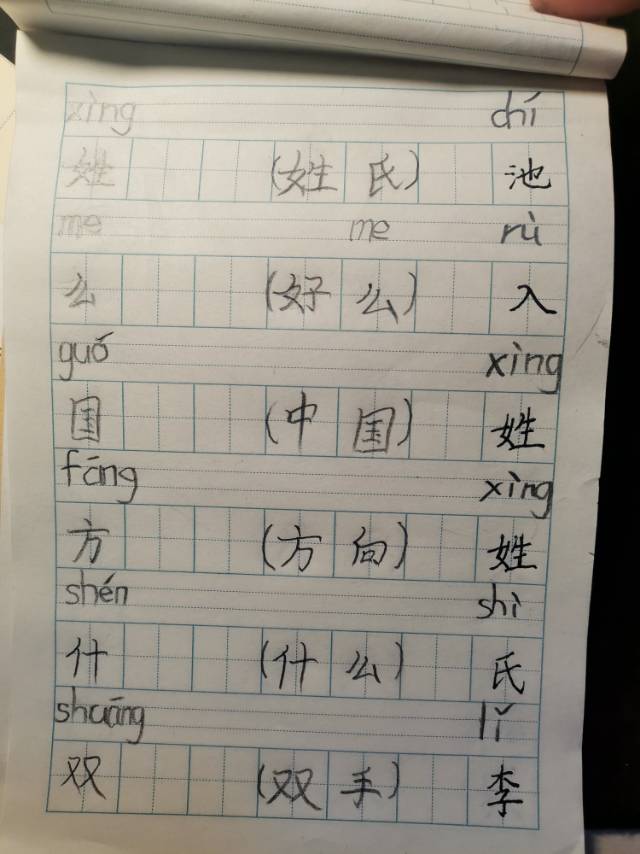 xìng chí
姓 (姓氏) 池
me me rù
么 (好么) 入
guó xìng
国 (中国) 姓
fāng xìng
方 (方向) 姓
shén shì
什 (什么) 氏
shuāng lǐ
双 (双手) 李